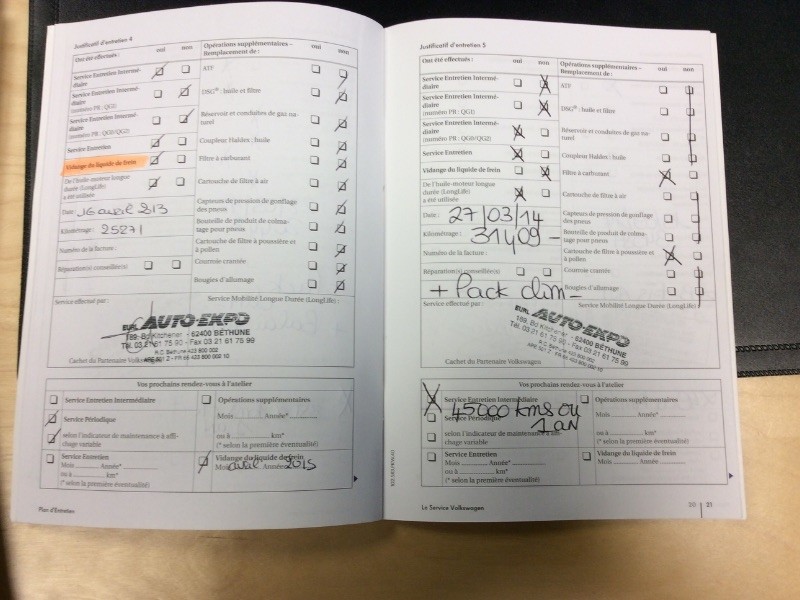 Justificatif d'entretien 4
Ont été effectués : oui non
Service Entretien Intermé-
diaire
Service Entretien Intermé-
diaire
(numéro PR : QG1)
Service Entretien Intermé-
diaire
(numéro PR : QG0/QG2)
Service Entretien
Vidange du liquide de frein
De l'huile-moteur longue
durée (LongLife)
a été utilisée
Date : 16 avril 2013
Kilométrage : 25271
Numéro de la facture :
Réparation(s) conseillée(s)
Opérations supplémentaires – oui non
Remplacement de :
ATF
DSG® : huile et filtre
Réservoir et conduites de gaz na-
turel
Coupleur Haldex : huile
Filtre à carburant
Cartouche de filtre à air
Capteurs de pression de gonflage
des pneus
Bouteille de produit de colma-
tage pour pneus
Cartouche de filtre à poussière et
à pollen
Courroie crantée
Bougies d'allumage
Service effectué par :
Service Mobilité Longue Durée (LongLife) :
EURL AUTO-EXPO
189, Bd Kitchener - 62400 BÉTHUNE
Tél. 03 21 61 75 90 - Fax 03 21 61 75 99
R.C. Béthune 423 800 002
Cachet du Partenaire Volkswagen
Vos prochains rendez-vous à l'atelier
Service Entretien Intermédiaire
Service Périodique
selon l'indicateur de maintenance à affi-
chage variable
Service Entretien
Mois Année*
ou à km*
(* selon la première éventualité)
Opérations supplémentaires
Mois Année*
ou à km*
(* selon la première éventualité)
Vidange du liquide de frein
Mois avril Année 2015
Plan d'Entretien
Justificatif d'entretien 5
Ont été effectués : oui non
Service Entretien Intermé-
diaire
Service Entretien Intermé-
diaire
(numéro PR : QG1)
Service Entretien Intermé-
diaire
(numéro PR : QG0/QG2)
Service Entretien
Vidange du liquide de frein
De l'huile-moteur longue
durée (LongLife)
a été utilisée
Date : 27/03/14
Kilométrage : 31409 -
Numéro de la facture :
Réparation(s) conseillée(s)
+ Pack clim -
Opérations supplémentaires – oui non
Remplacement de :
ATF
DSG® : huile et filtre
Réservoir et conduites de gaz na-
turel
Coupleur Haldex : huile
Filtre à carburant
Cartouche de filtre à air
Capteurs de pression de gonflage
des pneus
Bouteille de produit de colma-
tage pour pneus
Cartouche de filtre à poussière et
à pollen
Courroie crantée
Bougies d'allumage
Service effectué par :
Service Mobilité Longue Durée (LongLife) :
EURL AUTO-EXPO
189, Bd Kitchener - 62400 BÉTHUNE
Tél. 03 21 61 75 90 - Fax 03 21 61 75 99
R.C. Béthune 423 800 002
Cachet du Partenaire Volkswagen
Vos prochains rendez-vous à l'atelier
Service Entretien Intermédiaire
45000 kms ou
Service Périodique
1 an
selon l'indicateur de maintenance à affi-
chage variable
Service Entretien
Mois Année*
ou à km*
(* selon la première éventualité)
Opérations supplémentaires
Mois Année*
ou à km*
(* selon la première éventualité)
Vidange du liquide de frein
Mois Année
Le Service Volkswagen
20 21